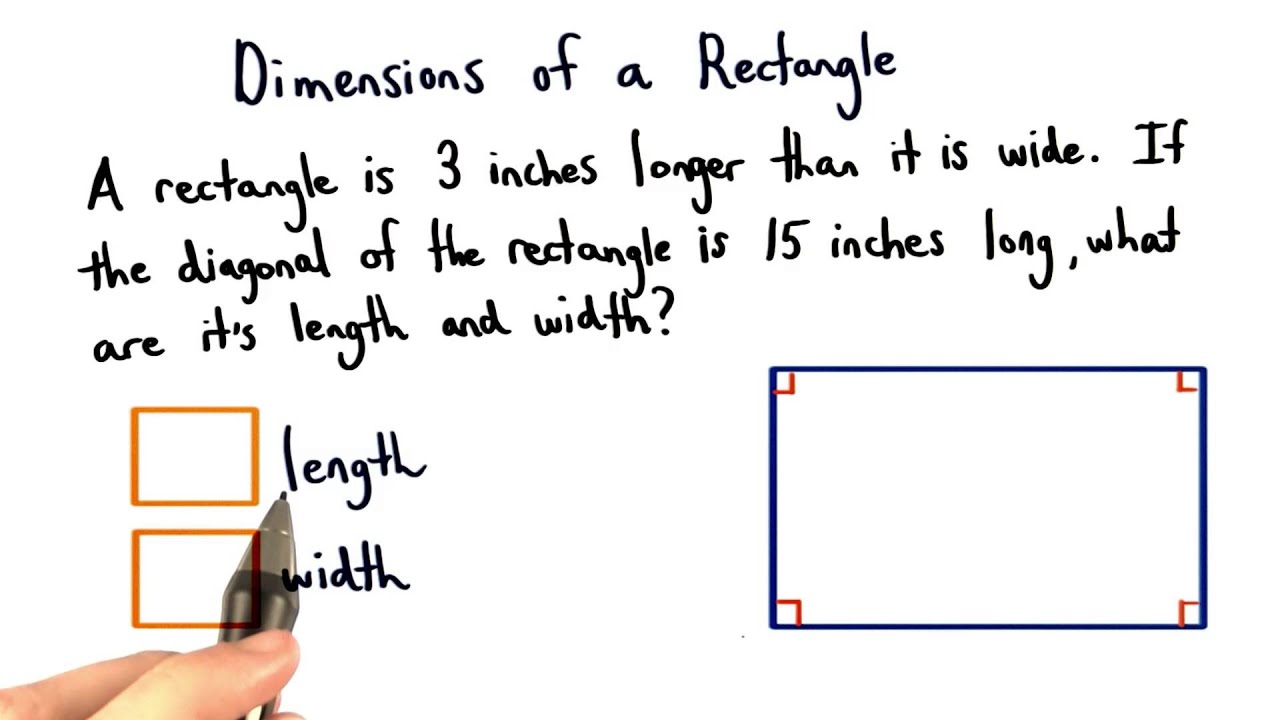 Dimensions of a Rectangle
A rectangle is 3 inches longer than it is wide. If
the diagonal of the rectangle is 15 inches long, what
are it's length and width?
length
width